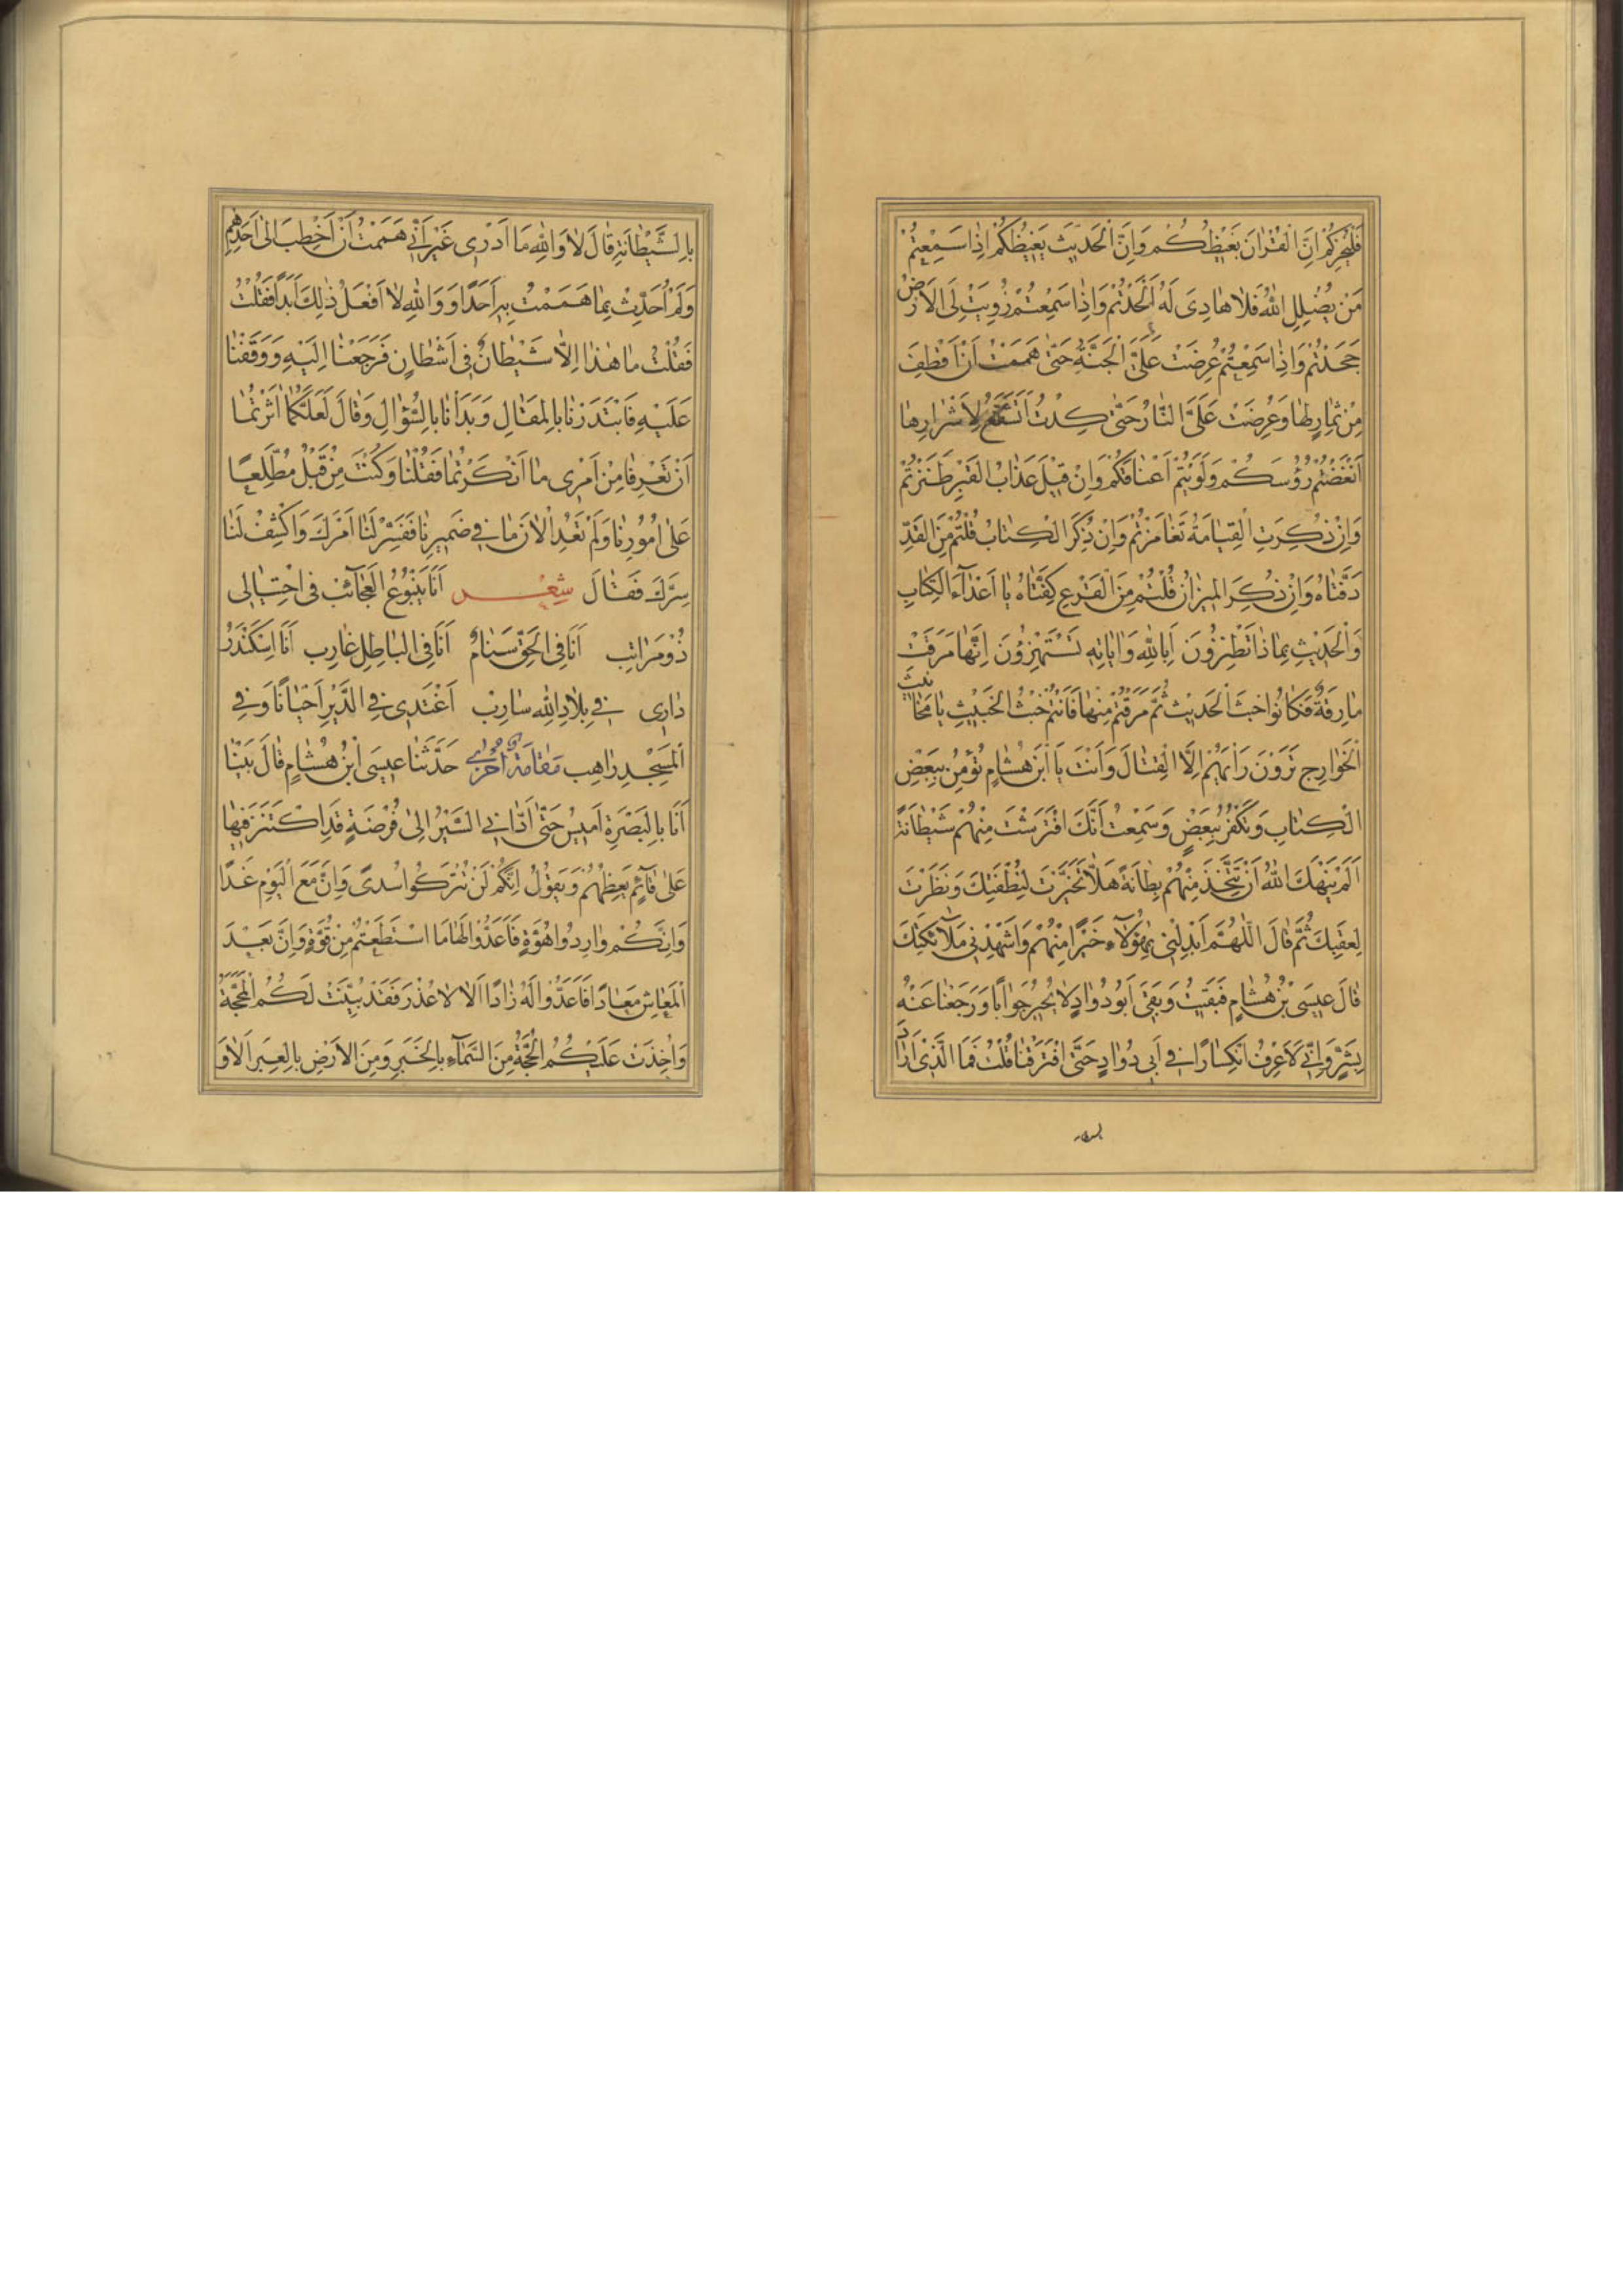 فَلْيُخْزِكُمْ اِنَّ الْقُرْاٰنَ بَغيظُكُم وَاِنَّ الْحَديثَ يَغيظُكُمْ اِذٰا سَمِعْتُمْ
مَنْ يُضْلِلِ اللّٰهُ فَلٰا هٰادِىَ لَهُ اَلْحَدْتُمْ وَاِذٰا سَمِعْتُمْ زُوِيَتْ لِىَ الْاَرْضُ
جَحَدْتُمْ وَاِذٰا سَمِعْتُمْ عُرِضَتْ عَلَىَّ الْجَنَّةُ حَتّىٰ هَمَمْتُ اَنْ اَقْطِفَ
مِنْ ثِمٰارِهٰا وَعُرِضَتْ عَلَىَّ النّٰارُ حَتّىٰ كِدْتُ لِاَشْرٰارِهٰا
اَنْغَضْتُمْ رُؤُسَكُمْ وَلَوَيْتُمْ اَعْنٰاقَكُمْ وَاِنْ قيلَ عَذٰابُ الْقَبْرِ طَنَزْتُمْ
وَاِنْ ذُكِرَتِ الْقِيٰامَةُ تَغٰامَزْتُمْ وَاِنْ ذُكِرَ الْكِتٰابُ قُلْتُمْ مِنَ الْقَدِّ
دَفَّتٰاهُ وَاِنْ ذُكِرَ الْميزٰانُ قُلْتُمْ مِنَ الْفَرْعِ كِفَّتٰاهُ يٰا اَعْدٰاءَ الْكِتٰابِ
وَالْحَديثِ بِمٰاذٰا تَطْنِزُونَ اَبِاللّٰهِ وَاٰيٰاتِهِ تَسْتَهْزِؤُنَ اِنَّهٰا مَرَقَتْ
مٰارِقَةٌ فَكٰانُوا خَبَثَ الْحَديثِ ثُمَّ مَرَقْتُمْ مِنْهٰا فَاَنْتُمْ خَبَثُ الْخَبيثِ يٰا مَخٰانيثَ
الْخَوٰارِجِ تَرَوْنَ رَاْيَهُمْ اِلَّا الْقِتٰالَ وَاَنْتَ يَا ابْنَ هِشٰامٍ تُؤْمِنُ بِبَعْضِ
الْكِتٰابِ وَتَكْفُرُ بِبَعْضٍ وَسَمِعْتُ اَنَّكَ افْتَرَشْتَ مِنْهُمْ شَيْطٰانَةً
اَلَمْ يَنْهَكَ اللّٰهُ اَنْ تَتَّخِذَ مِنْهُمْ بِطٰانَةً هَلّٰا تَخَيَّرْتَ لِنُطْفَتِكَ وَنَظَرْتَ
لِعَقِبِكَ ثُمَّ قٰالَ اَللّٰهُمَّ اَبْدِلْنى بِهٰؤُلٰاءِ خَيْرًا مِنْهُمْ وَاَشْهِدْنى مَلٰائِكَتَكَ
قٰالَ عيسَى بْنُ هِشٰامٍ فَبَقيتُ وَبَقِىَ اَبُو دُوٰادٍ لٰا يُحيرُ جَوٰابًا وَرَجَعْنٰا عَنْهُ
بِشَرٍّ وَاِنّى لَاَعْرِفُ انْكِسٰارًا فى اَبى دُوٰادٍ حَتَّى افْتَرَقْنٰا قُلْتُ فَمَا الَّذى اَرٰادَ
بالشيطانة
بِالشَّيْطٰانَةِ قٰالَ لٰا وَاللّٰهِ مٰا اَدْرى غَيْرَ اَنّى هَمَمْتُ اَنْ اَخْطِبَ اِلىٰ اَحَدِهِمْ
وَلَمْ اُحَدِّثْ بِمٰا هَمَمْتُ بِهِ اَحَدًا وَ وَاللّٰهِ لٰا اَفْعَلُ ذٰلِكَ اَبَدًا فَقُلْتُ
فَقُلْتُ مٰا هٰذٰا اِلّٰا شَيْطٰانٌ فى اَشْطٰانٍ فَرَجَعْنٰا اِلَيْهِ وَوَقَفْنٰا
عَلَيْهِ فَابْتَدَرَنٰا بِالْمَقٰالِ وَبَدَاَنٰا بِالسُّؤٰالِ وَقٰالَ لَعَلَّكُمٰا اٰثَرْتُمٰا
اَنْ تَعْرِفٰا مِنْ اَمْرى مٰا اَنْكَرْتُمٰا فَقُلْنٰا وَكُنْتَ مِنْ قَبْلُ مُطَّلِعًا
عَلىٰ اُمُورِنٰا وَلَمْ تَعْدُ الْاٰنَ مٰا فى ضَميرِنٰا فَفَسِّرْ لَنٰا اَمْرَكَ وَاكْشِفْ لَنٰا
سِرَّكَ فَقٰالَ شِعْر اَنَا يَنْبُوعُ الْعَجٰائِبْ فى احْتِيٰالى
ذُو مَرٰاتِب اَنَا فِى الْحَقِّ سَنٰامٌ اَنَا فِى الْبٰاطِلِ غٰارِب اَنَا اِسْكَنْدَرُ
دٰارى فى بِلٰادِ اللّٰهِ سٰارِبْ اَغْتَدى فِى الدَّيْرِ اَحْيٰانًا وَفِى
الْمَسْجِدِ رٰاهِب مَقٰامَةٌ اُخْرىٰ حَدَّثَنٰا عيسَى ابْنُ هِشٰامٍ قٰالَ بَيْنٰا
اَنَا بِالْبَصْرَةِ اَميسُ حَتّىٰ اَدّٰانِى السَّيْرُ اِلىٰ فُرْضَةٍ قَدِ اكْتَنَزَ فيهٰا
عَلىٰ قٰائِمٍ يَعِظُهُمْ وَيَقُولُ اِنَّكُمْ لَنْ تُتْرَكُوا سُدًى وَاِنَّ مَعَ الْيَوْمِ غَدًا
وَاِنَّكُمْ وٰارِدُوا هُوَّةٍ فَاَعِدُّوا لَهٰا مَا اسْتَطَعْتُمْ مِنْ قُوَّةٍ وَاِنَّ بَعْدَ
الْمَعٰاشِ مَعٰادًا فَاَعِدُّوا لَهُ زٰادًا اَلٰا لٰا عُذْرَ فَقَدْ بُيِّنَتْ لَكُمُ الْمَحَجَّةُ
وَاُخِذَتْ عَلَيْكُمُ الْحُجَّةُ مِنَ السَّمٰاءِ بِالْخَبَرِ وَمِنَ الْاَرْضِ بِالْعِبَرِ اَلٰا وَ